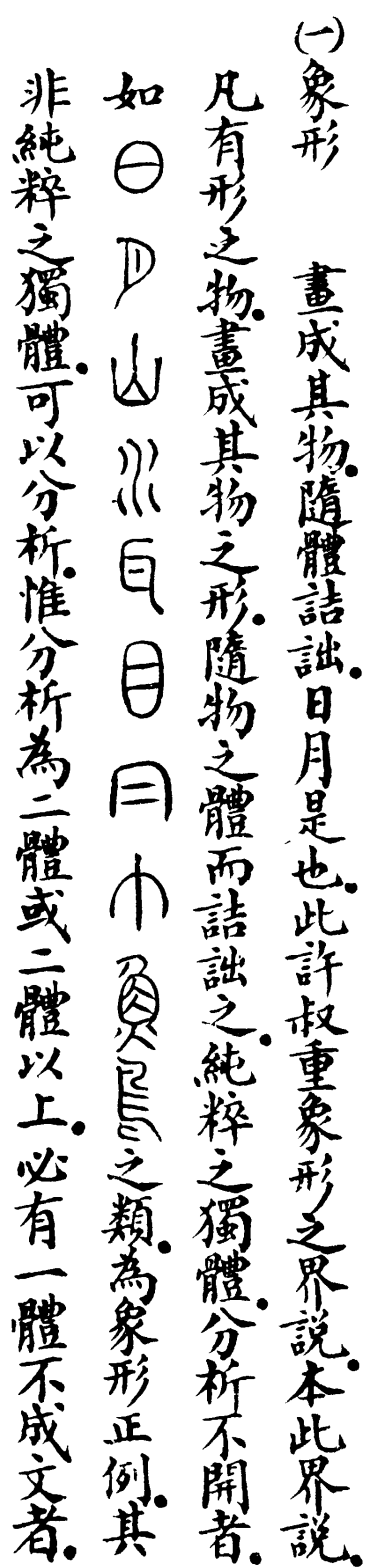 (一)象形　畫成其物。隨體詰詘。日月是也。此許叔重象形之界說。本此界說。
凡有形之物。畫成其物之形。隨物之體而詰詘之。純粹之獨體。分析不開者。
如日月山水目冃巾魚之類。為象形正例。其
非純粹之獨體。可以分析。惟分析為二體或二體以上。必有一體不成文者。